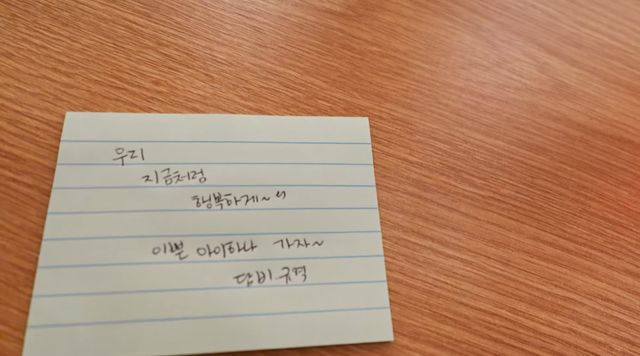 우리
지금처럼
행복하게~
이쁜 아이하나 가자~
담비.